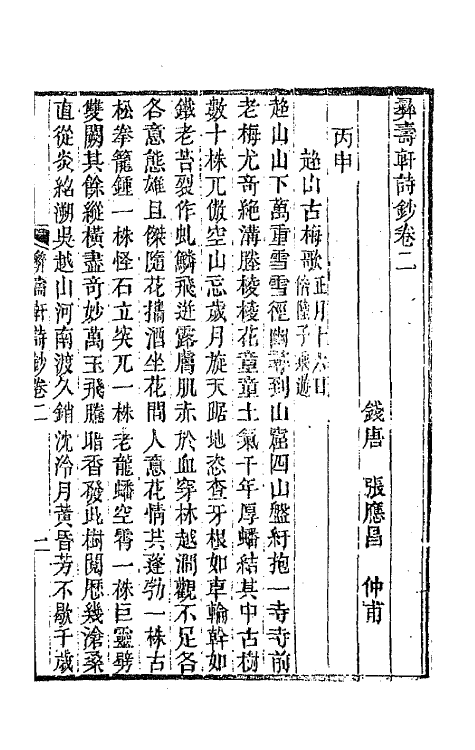 彝壽軒詩鈔卷二
錢唐　張應昌　仲甫
丙申
超山古梅歌正月十六日
偕陸子乘遊
超山山下萬重雪雪徑幽尋到山窟四山盤紆抱一寺寺前
老梅尤奇絕溝塍棱棱花童童土氣千年厚蟠結其中古樹
數十株兀傲空山忘歲月旋天踞地恣查牙根如車輪幹如
鐵老苔裂作虬鱗飛迸露膚肌赤於血穿林越澗觀不足各
各意態雄且傑隨花擕酒坐花間人意花情共蓬勃一株古
松拳籠鍾一株怪石立突兀一株老龍蟠空霄一株巨靈劈
雙闕其餘縱橫盡奇妙萬玉飛騰暗香發此樹閱歷幾滄桑
直從炎紹溯吳越山河南渡久銷沈冷月黃昏芳不歇千歲
彝壽軒詩鈔卷二　一